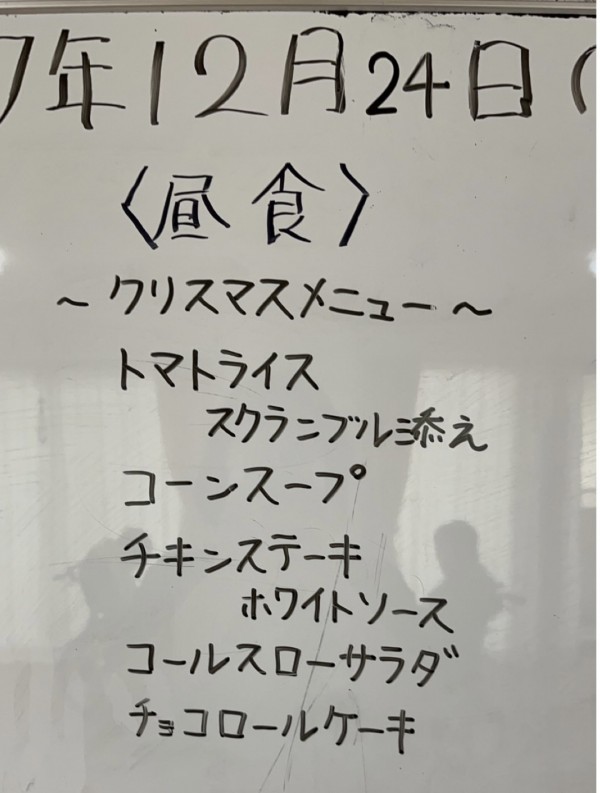 7年12月24日(
〈昼食〉
~クリスマスメニュー~
トマトライス
スクランブル添え
コーンスープ
チキンステーキ
ホワイトソース
コールスローサラダ
チョコロールケーキ